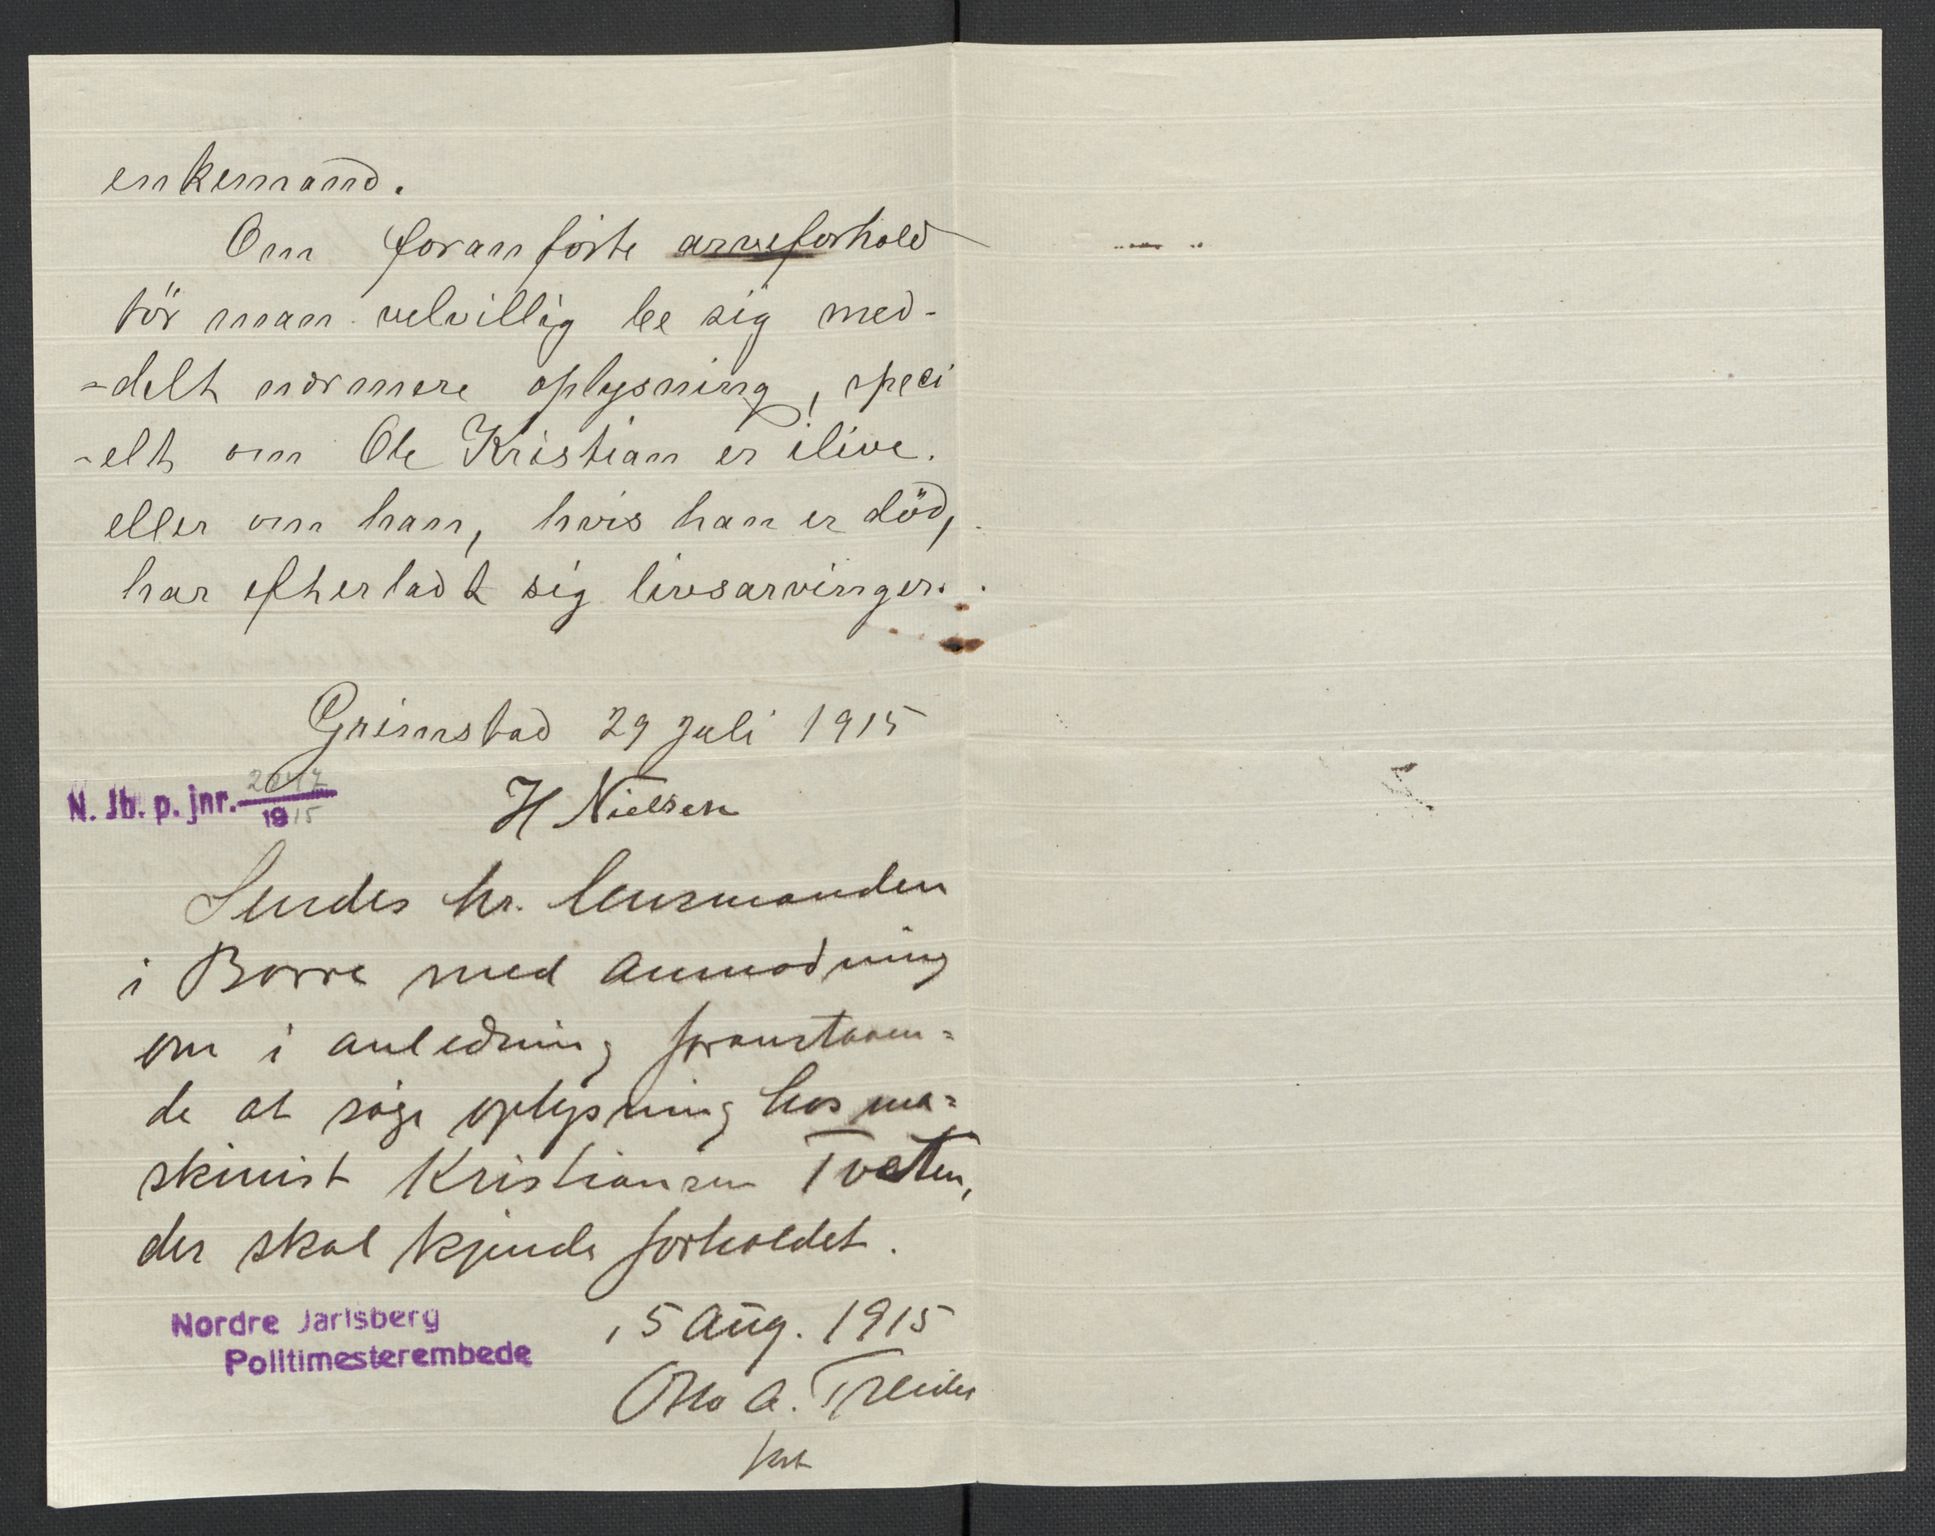 enkemand.
Om foranførte arveforhold
tör man velvillig be sig med-
-delt nærmere oplysning, speci
-elt om Ole Kristian er ilive.
eller om han, hvis han er död,
har efterladt sig livsarvinger.
Grimstad 29 juli 1915
N. Jb. p. jnr. 2047/1915
H Nielsen
Sendes hr. lensmanden
i Borre med anmodning
om i anledning foranstaaen=
de at søge oplysning hos ma=
skinist Kristiansen Tveten,
der skal kjende forholdet.
Nordre Jarlsberg
Politimesterembede
, 5 Aug. 1915
Otto A. Treider
fast